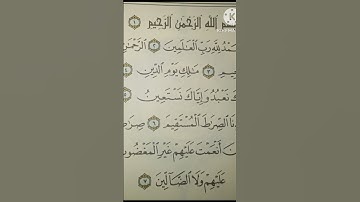 سْمِ اللَّهِ الرَّحْمَٰنِ الرَّحِيمِ ١
مْدُ لِلَّهِ رَبِّ الْعَالَمِينَ ٢ الرَّحْمَٰنِ
يمِ ٣ مَالِكِ يَوْمِ الدِّينِ
كَ نَعْبُدُ وَإِيَّاكَ نَسْتَعِينُ
نَا الصِّرَاطَ الْمُسْتَقِيمَ ٦ صِرَاطَ
نَ أَنْعَمْتَ عَلَيْهِمْ غَيْرِ الْمَغْضُو
عَلَيْهِمْ وَلَا الضَّالِّينَ ٧